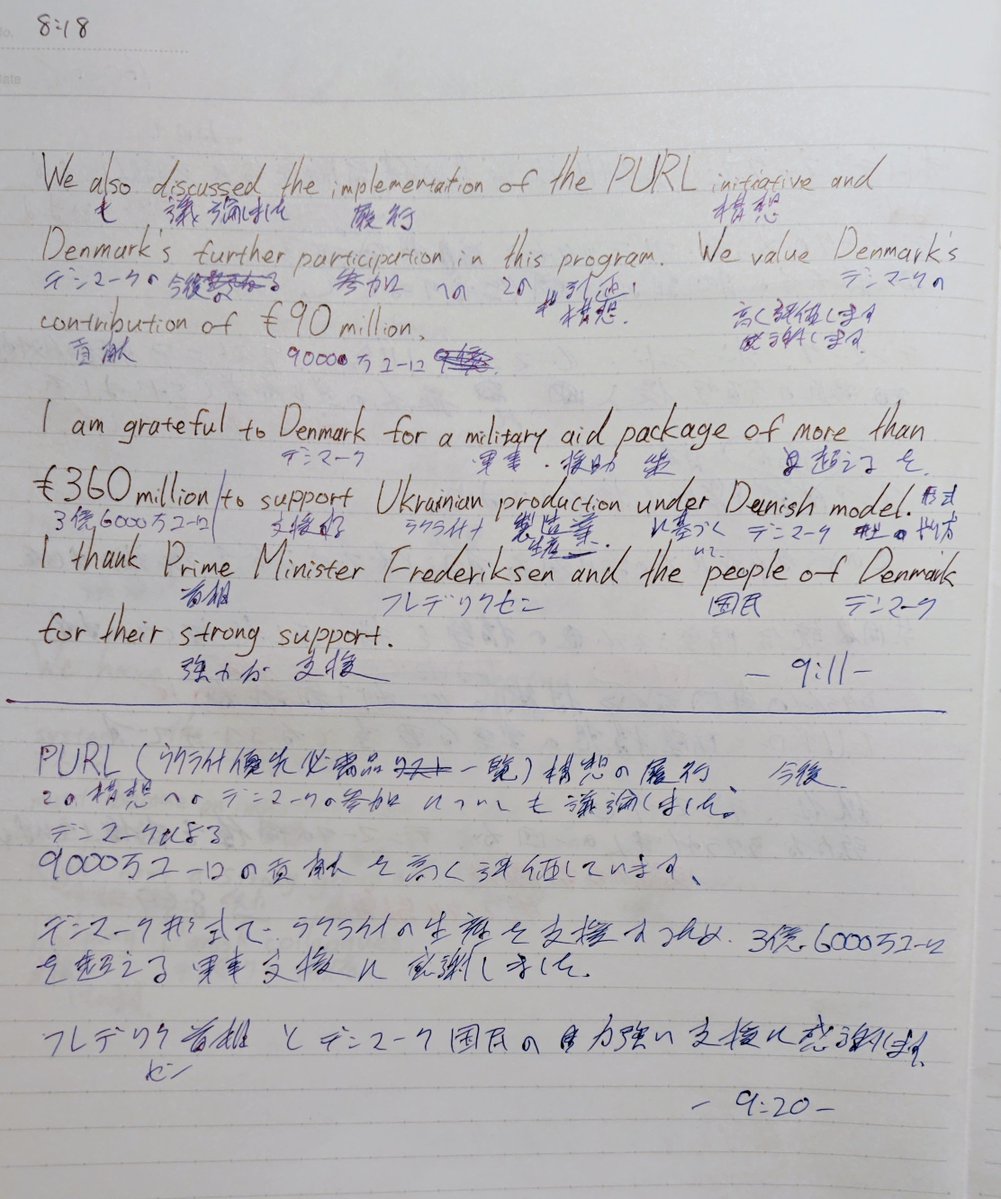 No. 8:18
Date
We also discussed the implementation of the PURL initiative and
も 議論しました 履行 構想
Denmark's further participation in this program. We value Denmark's
デンマークの 今後の 参加 への この 構想 デンマークの
contribution of €90 million.
貢献 90000万ユーロ 高く評価します
感謝します
I am grateful to Denmark for a military aid package of more than
デンマーク 軍事・援助 策 超える を
€360 million / to support Ukrainian production under Danish model.
3億6000万ユーロ 支援する ウクライナ 製造業 に基づく デンマーク 型の 形式
生産 いて やり方
I thank Prime Minister Frederiksen and the people of Denmark
首相 フレデリクセン 国民 デンマーク
for their strong support.
強力な 支援 - 9:11 -
PURL (ウクライナ優先必需品リスト一覧) 構想の履行 今後
この構想へのデンマークの参加についても議論しました。
デンマークによる
9000万ユーロの貢献を高く評価しています。
デンマーク形式で ウクライナの生産を支援するため、3億6000万ユーロ
を超える軍事支援に感謝しました。
フレデリク首相とデンマーク国民の力強い支援に感謝します。
セン
- 9:20 -